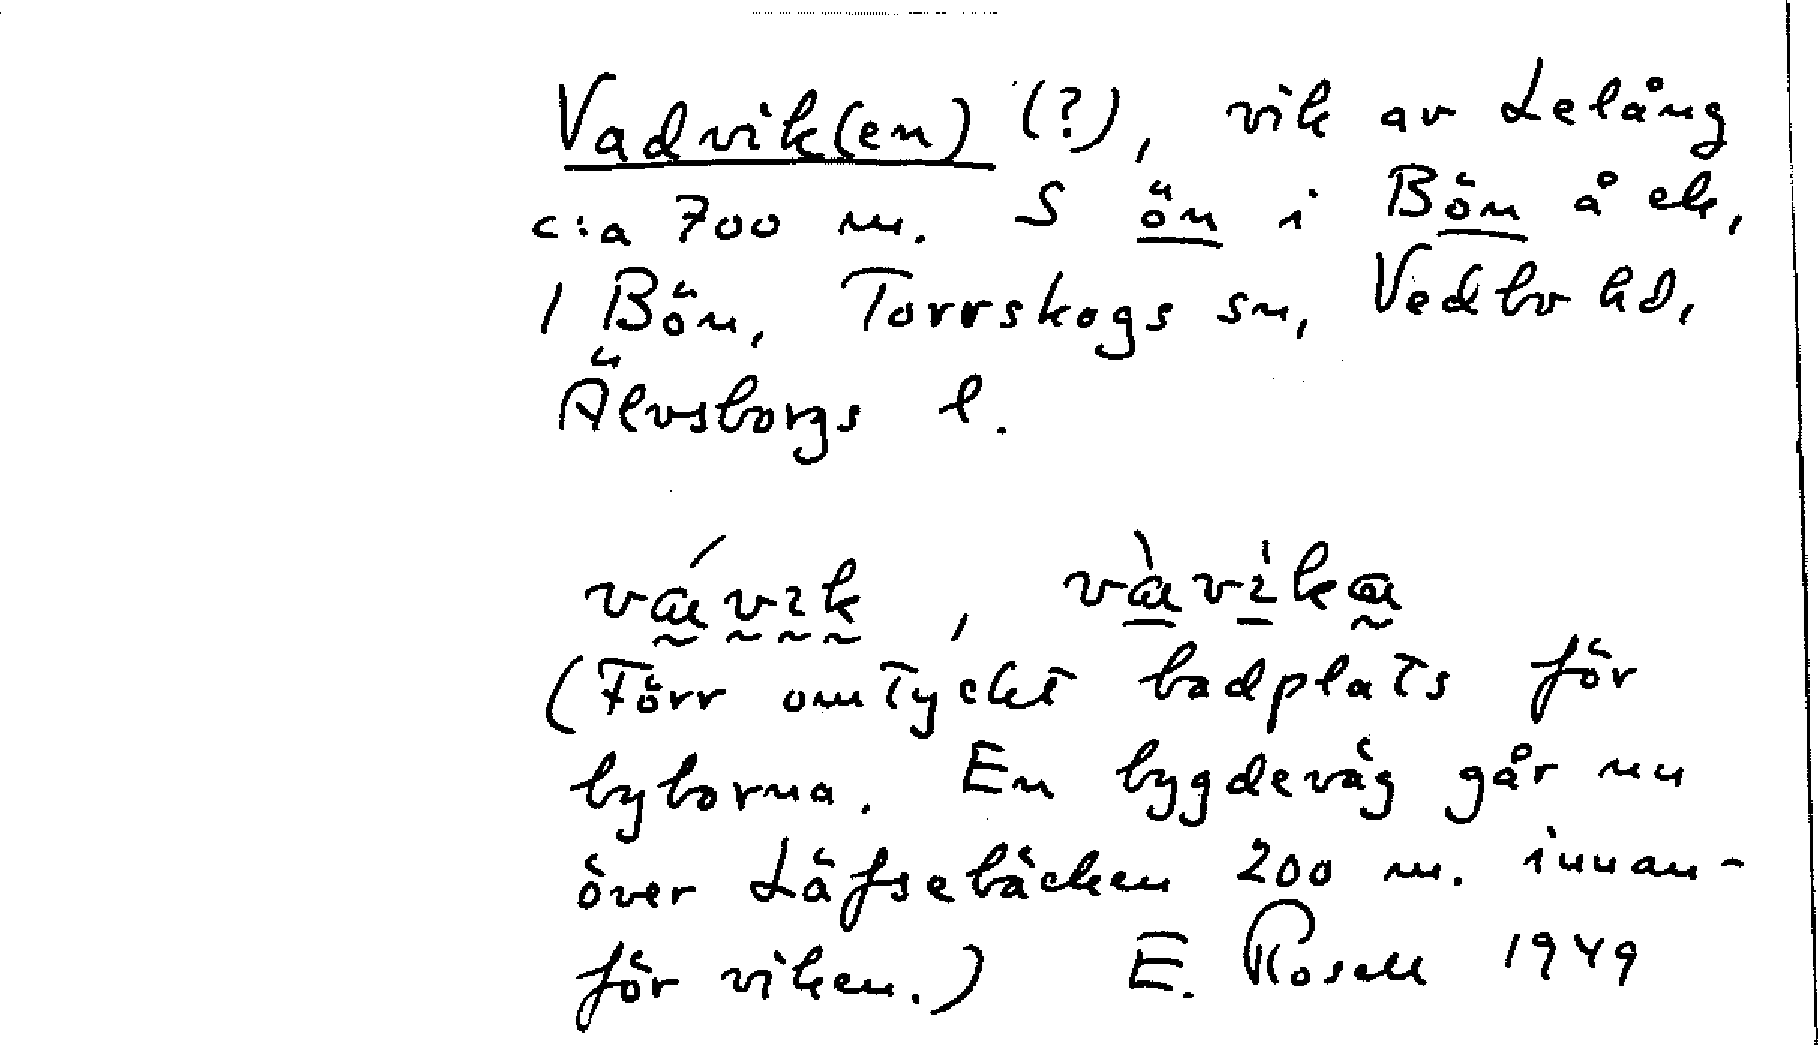 Vadvik(en) (?), vik av Lelång
c:a 700 m. S ön i Bön å ek,
1 Bön, Torrskogs sn, Vedbo hd,
Älvsborgs l.
(Förr omtyckt badplats för
byborna. En bygdeväg går nu
över Läfsebäcken 200 m. innan-
för viken.) E. Rosell 1949